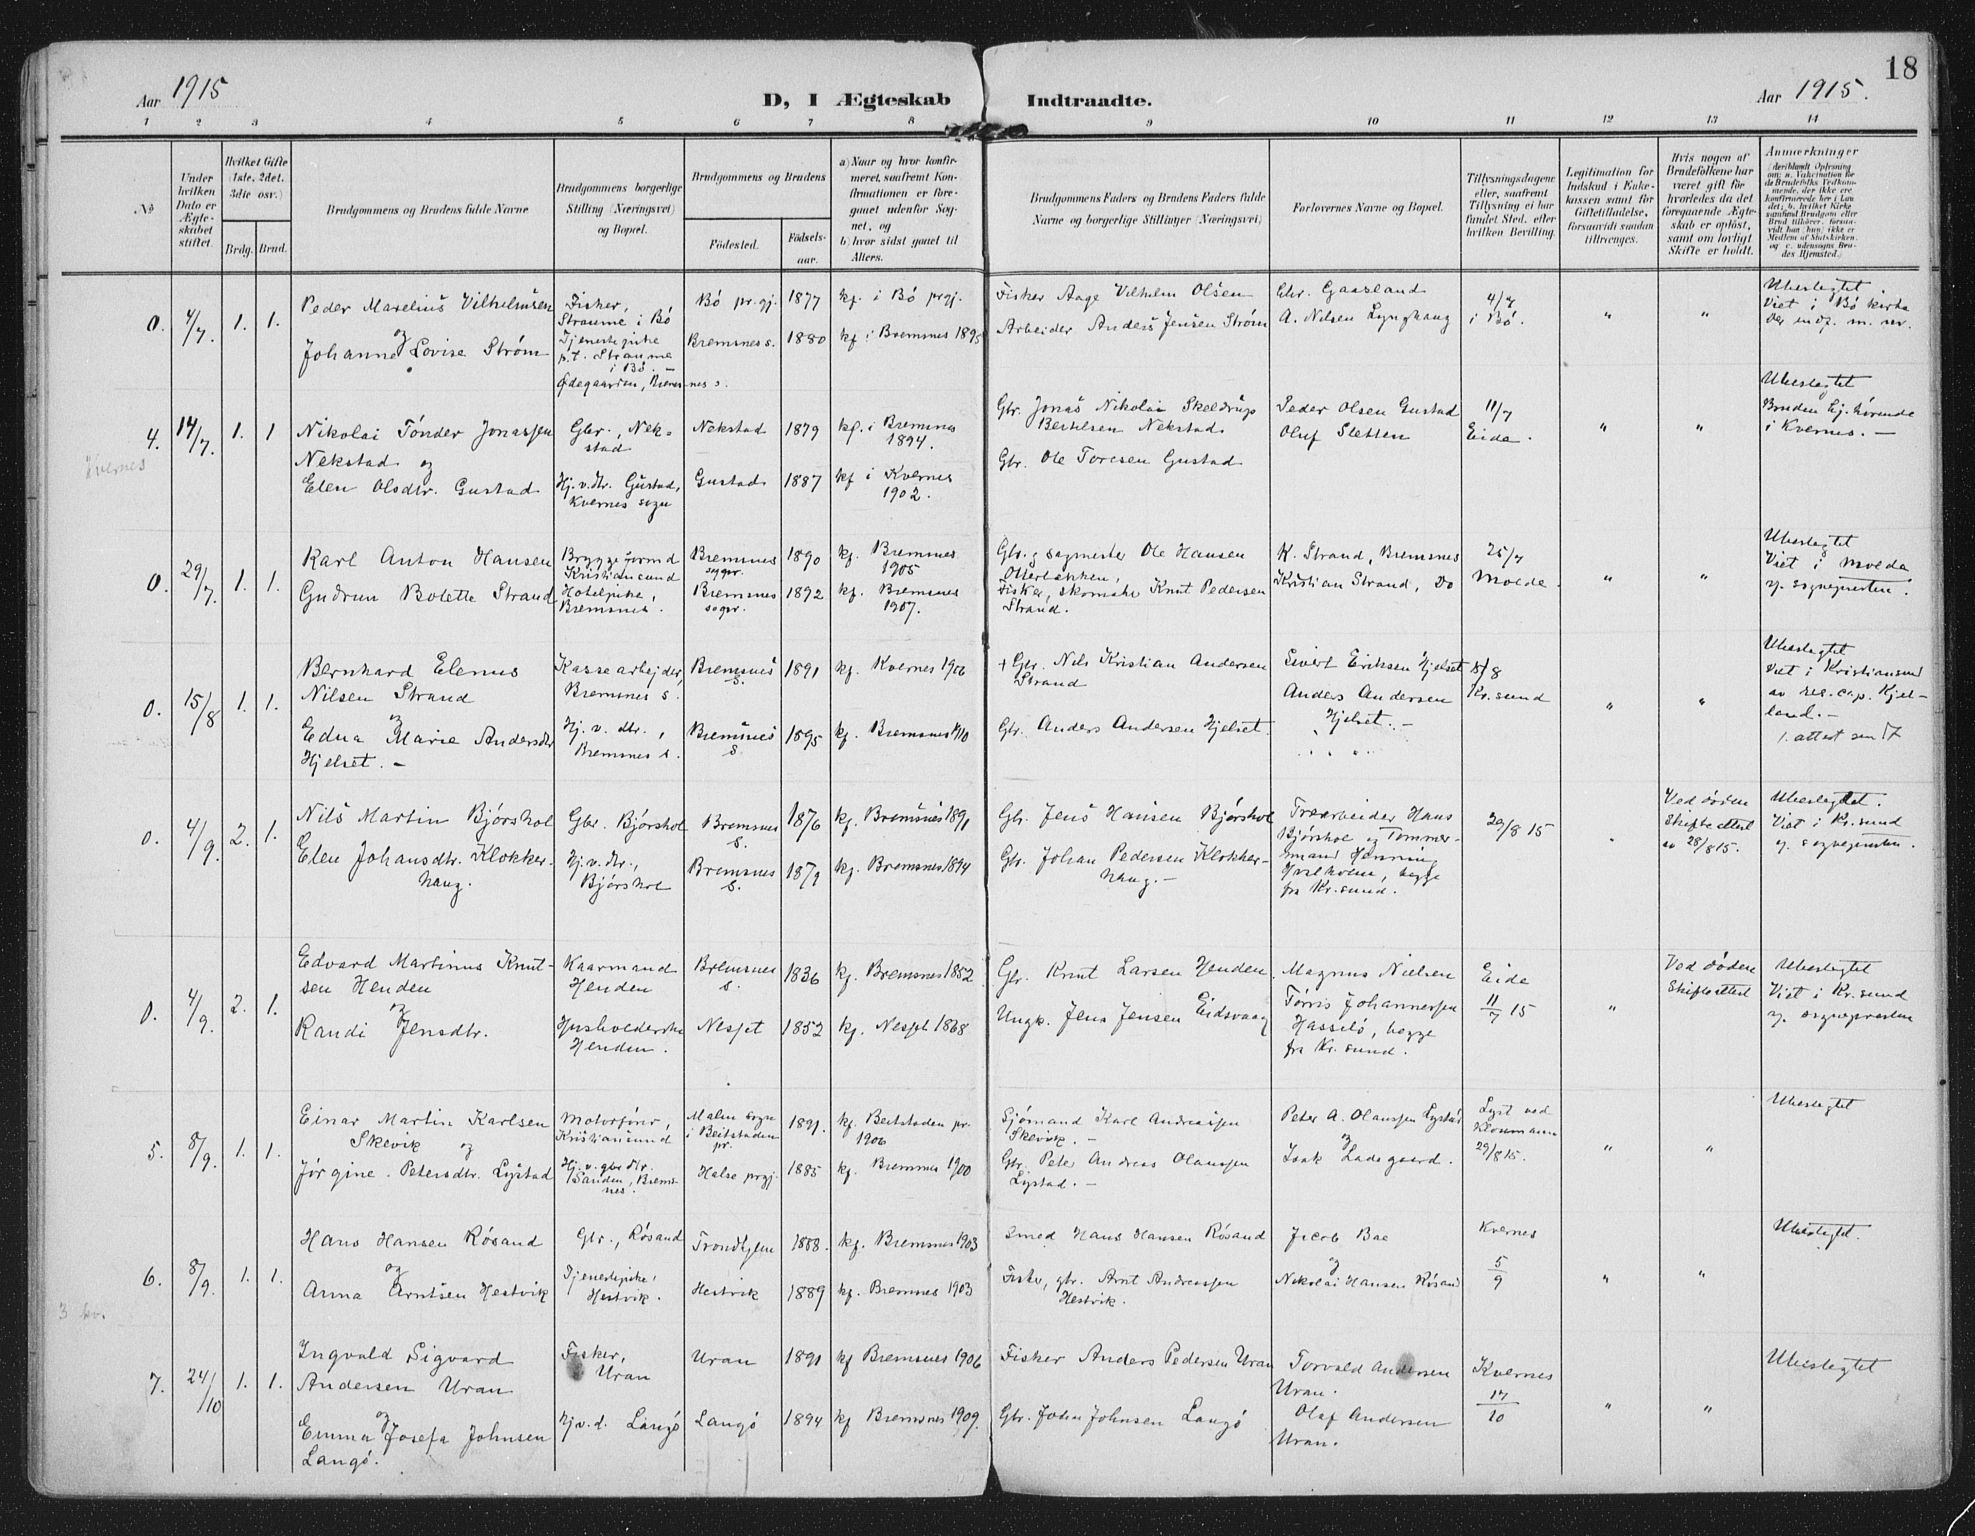 18
Aar 1915
D, I Ægteskab
Indtraadte.
Aar 1915.
1 2 3 4 5 6 7 8 9 10 11 12 13 14
No
Under
hvilken
Dato er
Ægte-
skabet
stiftet.
Hvilket Gifte
(1ste, 2det,
3die osv.)
Brdg. Brud.
Brudgommens og Brudens fulde Navne
Brudgommens borgerlige
Stilling (Næringsvei)
og Bopæl.
Brudgommens og Brudens
Fødested.
Fødsels-
aar.
a) Naar og hvor konfir-
meret, saafremt Kon-
firmationen er fore-
gaaet udenfor Sog-
net, og
b) hvor sidst gaaet til
Alters.
Brudgommens Faders og Brudens Faders fulde
Navne og borgerlige Stillinger (Næringsvei)
Forlovernes Navne og Bopæl.
Tillysningsdagene
eller, saafremt
Tillysning ei har
fundet Sted, efter
hvilken Bevilling.
Legitimation for
Indskud i Enke-
kassen samt for
Giftetilladelse,
forsaavidt saadan
tiltrænges.
Hvis nogen af
Brudefolkene har
været gift før
hvorledes da det
foregaaende Ægte-
skab er opløst,
samt om lovligt
Skifte er holdt.
Anmærkninger
0. 4/7. 1. 1.
Peder Marelius Vilhelmsen
og
Johanne Lovise Strøm
Fisker,
Straume i Bø
Tjenestepike
p.t. Straume
i Bø. –
Ødegaarden, Bremsnes s.
Bø pr.gj. 1877 kf. i Bø prgj.
Bremsnes s. 1880 kf. i Bremsnes 1895
Fisker Aage Vilhelm Olsen
Arbeider Anders Jensen Strøm
Chr. Gaasland
A. Nilsen Lynghaug
4/7
i Bø.
" "
Ubeslegtet
Viet i Bø kirke
4. 14/7. 1. 1
Kvernes
Nikolai Tønder Jonassen
Nekstad og
Elen Olsdtr. Gustad
Gbr., Nek-
stad
Hj. v. dtr. Gustad,
Kvernes sogn
Nekstad 1879 kf. i Bremsnes
1894.
Gustad 1887 kf i Kvernes
1902.
Gbr. Jonas Nikolai Skeldrup
Bertelsen Nekstad.
Gbr. Ole Toresen Gustad
Peder Olsen Gustad
Oluf Sletten
11/7
Eide.
" "
Ubeslegtet
Bruden hj. hørende
i Kvernes. –
0. 29/7. 1. 1.
Karl Anton Hansen
Gudrun Bolette Strand
Bryggeformd
Kristiansund
Hotelpike,
Bremsnes.
Bremsnes
sogn. 1890 kf. Bremsnes
1905
Bremsnes
sogn. 1892 kf. Bremsnes
1907.
Gbr. og sagmester Ole Hansen
Otterbækken,
Fisker, skomaker Knut Pedersen
Strand.
K. Strand, Bremsnes
Kristian Strand, Do
25/7
Molde.
" "
Ubeslegtet
Viet i Molde
af sognepresten.
0. 15/8 1. 1.
Bernhard Elenus
Nilsen Strand
og
Edna Marie Andersdtr
Hjelset. –
Kassearbejder
Bremsnes s.
Hj. v. dtr.,
Bremsnes s.
Bremsnes
s. 1891 kf. Kvernes 1906
Bremsnes
s. 1895 kf. Bremsnes 1910
+ Gbr. Nils Kristian Andersen
Strand
Gbr. Anders Andersen Hjelset.
Sivert Eriksen Hjelset
Anders Andersen
Hjelset. –
8/8
Kr.sund
" "
Ubeslegtet
Viet i Kristiansund
av res. cap. Kjel-
land. –
0. 4/9. 2. 1.
Nils Martin Bjørshol
Elen Johansdtr. Klokker-
haug.
Gbr. Bjørshol
Hj. v. dtr.,
Bjørshol
Bremsnes
s. 1876 kf. Bremsnes 1891
Bremsnes
s. 1879 kf. Bremsnes 1894
Gbr. Jens Hansen Bjørshol
Gbr. Johan Pedersen Klokker-
haug. –
Træarbeider Hans
Bjørshol og Tømmer-
mand Henning
Hvalholm, begge
fra Kr.sund.
29/8 15
"
Ved døden
Skifteattest
av 28/8 15.
Ubeslegtet.
Viet i Kr.sund
af sognepresten.
0. 4/9. 2. 1.
Edvard Martinus Knut-
sen Henden
og
Randi Jensdtr.
Kaarmand
Henden
Husholderske
Henden.
Bremsnes
s. 1836 kf. Bremsnes 1852
Nesjet 1852 kf. Nesjet 1868
Gbr. Knut Larsen Henden
Ungk. Jens Jensen Eidsvaag
Magnus Nielsen
Tørris Johannessen
Hasselø, begge
fra Kr.sund.
Eide
11/7 15
"
Ved døden
Skifteattest
Ubeslegtet
Viet i Kr.sund
af sognepresten
5. 8/9. 1. 1.
Einar Martin Karlsen
Skevik og
Jørgine Petersdtr. Lystad
Motorfører,
Kristiansund
Hj. v. gbr dtr.
Sanden, Brems-
nes.
Malm sogn
i Beitstaden
pr. 1891. kf. Beitstaden pr.
1906
Halse prgj. 1885 kf. Bremsnes 1900
Sjømand Karl Andreassen
Skevik. –
Gbr. Peter Andreas Olaussen
Lystad. –
Peter A. Olaussen Lystad
og
Isak Ladegaard.
Lyst ved
Klokkeren
29/8 15.
" "
Ubeslegtet
6. 8/9. 1. 1.
3 kv.
Hans Hansen Røsand
og
Anna Arntsen Hestvik
Gbr., Røsand
Tjenestepike,
Hestvik.
Trondhjem 1888. kf. Bremsnes 1903
Hestvik 1889 kf. Bremsnes 1903
Smed Hans Hansen Røsand
Fisker, gbr. Arnt Andreassen
Hestvik.
Jacob Bae
og
Nikolai Hansen Røsand
Kvernes
5/9
" "
Ubeslegtet.
7. 24/10 1. 1.
Ingvald Sigvard
Andersen Uran
og
Emma Josefa Johnsen
Langø.
Fisker,
Uran
Hj v. d. Langø
Uran 1891 kf Bremsnes 1906
Langø 1894 kf Bremsnes 1909.
Fisker Anders Pedersen Uran
Gbr. John Johnsen Langø
Torvald Andersen
Uran.
Olaf Andersen
Uran.
Kvernes
17/10
" "
Ubeslegtet